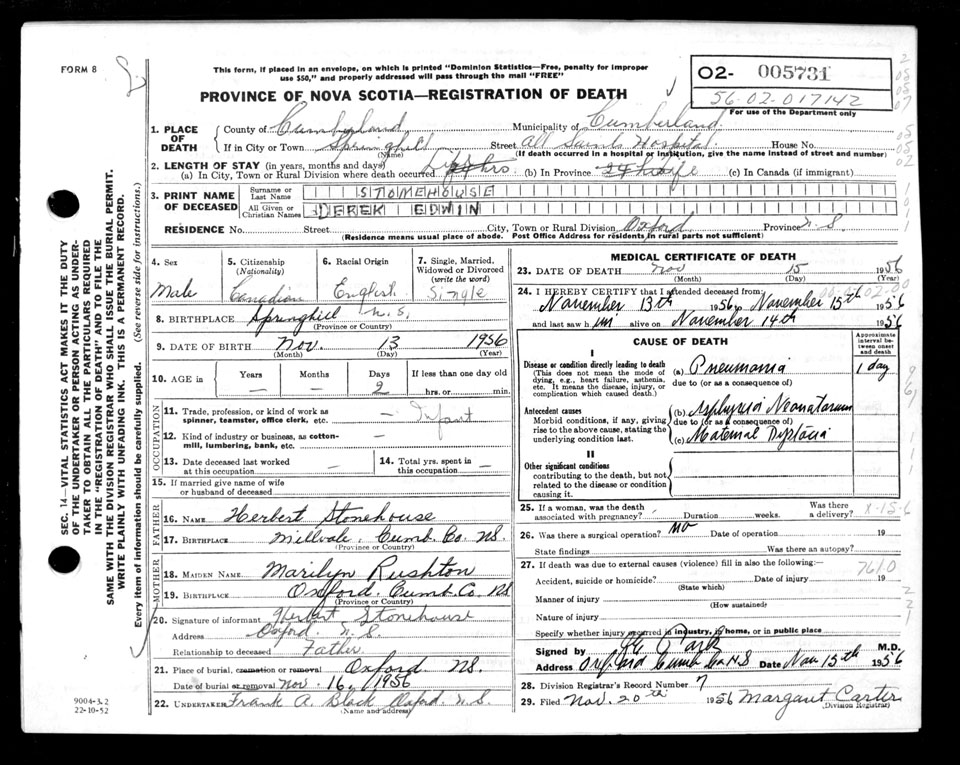 FORM 8
This form, if placed in an envelope, on which is printed "Dominion Statistics—Free, penalty for improper
use $50," and properly addressed will pass through the mail "FREE"
02- 005731
56-02-017142
For use of the Department only
PROVINCE OF NOVA SCOTIA—REGISTRATION OF DEATH
1. PLACE OF DEATH
County of Cumberland Municipality of Cumberland
If in City or Town Springhill Street All Saints Hospital House No.
(Name) (If death occurred in a hospital or institution, give the name instead of street and number)
2. LENGTH OF STAY (in years, months and days)
(a) In City, Town or Rural Division where death occurred Life (b) In Province life (c) In Canada (if immigrant)
3. PRINT NAME OF DECEASED
Surname or Last Name STONEHOUSE
All Given or Christian Names DEREK EDWIN
RESIDENCE No. Street City, Town or Rural Division Oxford Province N.S.
(Residence means usual place of abode. Post Office Address for residents in rural parts not sufficient)
4. Sex Male
5. Citizenship (Nationality) Canadian
6. Racial Origin English
7. Single, Married, Widowed or Divorced (write the word) Single
8. BIRTHPLACE Springhill N.S.
(Province or Country)
9. DATE OF BIRTH Nov. 13 1956
(Month) (Day) (Year)
10. AGE in Years — Months — Days 2 If less than one day old hrs. or min.
OCCUPATION
11. Trade, profession, or kind of work as spinner, teamster, office clerk, etc. — Infant
12. Kind of industry or business, as cotton-mill, lumbering, bank, etc. —
13. Date deceased last worked at this occupation —
14. Total yrs. spent in this occupation —
15. If married give name of wife or husband of deceased
FATHER
16. NAME Herbert Stonehouse
17. BIRTHPLACE Millvale, Cumb. Co. NS.
(Province or Country)
MOTHER
18. MAIDEN NAME Marilyn Rushton
19. BIRTHPLACE Oxford. Cumb. Co. NS
(Province or Country)
20. Signature of informant Herbert Stonehouse
Address Oxford. N.S.
Relationship to deceased Father.
21. Place of burial, cremation or removal Oxford NS.
Date of burial or removal Nov. 16, 1956
22. UNDERTAKER Frank A. Black Oxford. N.S.
(Name and address)
MEDICAL CERTIFICATE OF DEATH
23. DATE OF DEATH Nov 15 1956
(Month) (Day) (Year)
24. I HEREBY CERTIFY that I attended deceased from:
November 13th 1956, November 15th 1956
and last saw him alive on November 14th 1956
CAUSE OF DEATH
Approximate interval between onset and death
I
Disease or condition directly leading to death
(This does not mean the mode of dying, e.g., heart failure, asthenia, etc. It means the disease, injury, or complication which caused death.)
(a) Pneumonia 1 day
due to (or as a consequence of)
Antecedent causes
Morbid conditions, if any, giving rise to the above cause, stating the underlying condition last.
(b) Asphyxia Neonatorum
due to (or as a consequence of)
(c) Maternal Dystocia
II
Other significant conditions
contributing to the death, but not related to the disease or condition causing it.
25. If a woman, was the death associated with pregnancy? Duration weeks. Was there a delivery?
26. Was there a surgical operation? No Date of operation 19
State findings Was there an autopsy?
27. If death was due to external causes (violence) fill in also the following:— 7610
Accident, suicide or homicide? Date of injury 19
(State which)
Manner of injury
(How sustained)
Nature of injury
Specify whether injury occurred in industry, in home, or in public place
Signed by Park M.D.
Address Oxford Cumb Co N S Date Nov 15th 1956
28. Division Registrar's Record Number 7
29. Filed Nov. 20th 1956 Margaret Carter
(Division Registrar)
SEC. 14—VITAL STATISTICS ACT MAKES IT THE DUTY
OF THE UNDERTAKER OR PERSON ACTING AS UNDER-
TAKER TO OBTAIN ALL THE PARTICULARS REQUIRED
IN THE "REGISTRATION OF DEATH" AND TO FILE THE
SAME WITH THE DIVISION REGISTRAR WHO SHALL ISSUE THE BURIAL PERMIT.
WRITE PLAINLY WITH UNFADING INK. THIS IS A PERMANENT RECORD.
Every item of information should be carefully supplied. (See reverse side for instructions.)
9004-3.2
22-10-52